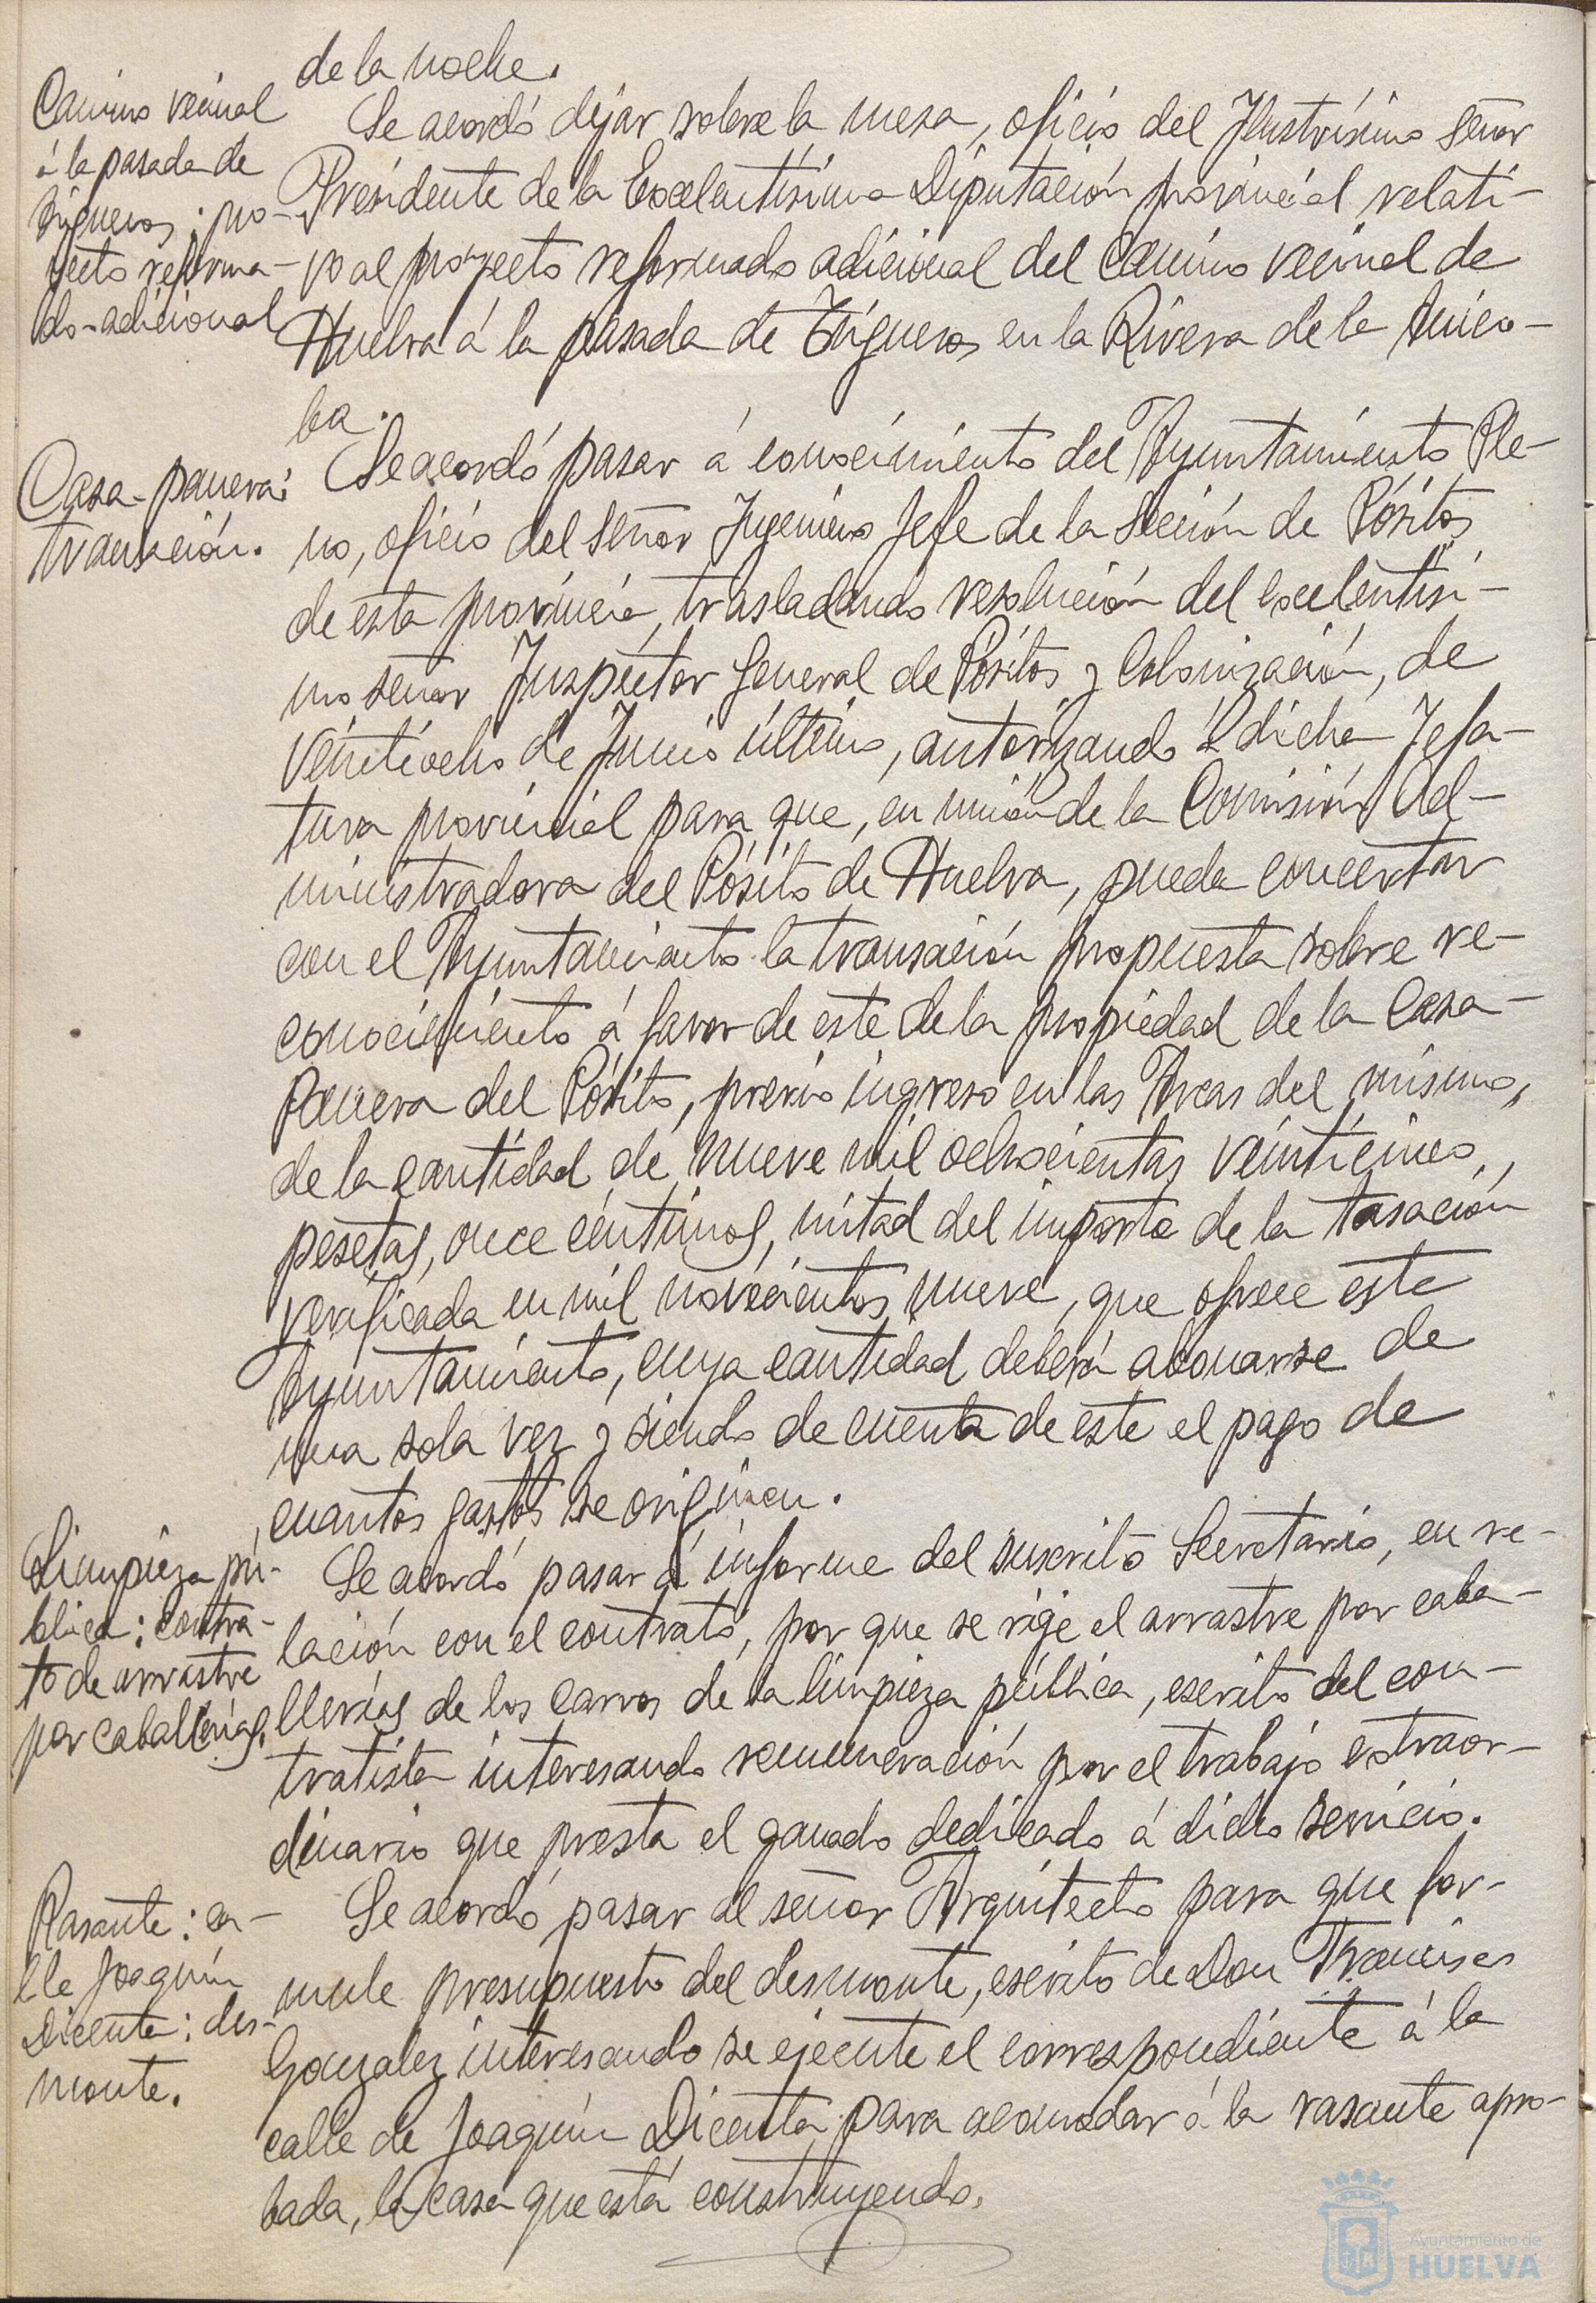 de la noche.
Camino vecinal
á la pasada de
Trigueros: pro-
yecto reforma-
do-adicional
Se acordó dejar sobre la mesa, oficio del Ilustrísimo señor
Presidente de la Excelentísima Diputación provincial relati-
vo al proyecto reformado adicional del camino vecinal de
Huelva á la pasada de Trigueros en la Rivera de la Anico-
ba.
Casa-panera:
transación.
Se acordó pasar á conocimiento del Ayuntamiento Ple-
no, oficio del señor Ingeniero Jefe de la Sección de Pósitos
de esta provincia, trasladando resolución del excelentísi-
mo señor Inspector General de Pósitos y Colonización, de
veintiocho de Junio último, autorizando á dicha Jefa-
tura provincial para que, en unión de la Comisión Ad-
ministradora del Pósito de Huelva, pueda concertar
con el Ayuntamiento la transación propuesta sobre re-
conocimiento á favor de este de la propiedad de la Casa-
Panera del Pósito, previo ingreso en las Arcas del mismo,
de la cantidad de nueve mil ochocientas veinticinco,
pesetas, once céntimos, mitad del importe de la tasación
verificada en mil novecientos nueve, que ofrece este
Ayuntamiento, cuya cantidad deberá abonarse de
una sola vez y siendo de cuenta de este el pago de
cuantos gastos se originen.
Limpieza pú-
blica: contra-
to de arrastre
por caballerías.
Se acordó pasar á informe del suscrito Secretario, en re-
lación con el contrato, por que se rige el arrastre por caba-
llerías de los carros de la limpieza pública, escrito del con-
tratista interesando remuneración por el trabajo extraor-
dinario que presta el ganado dedicado á dicho servicio.
Rasante: ca-
lle Joaquín
Dicenta: des-
monte.
Se acordó pasar al señor Arquitecto para que for-
mule presupuesto del desmonte, escrito de Don Francisco
González interesando se ejecute el correspondiente á la
calle de Joaquín Dicenta para acomodar á la rasante apro-
bada, la casa que está construyendo.
Ayuntamiento de
HUELVA